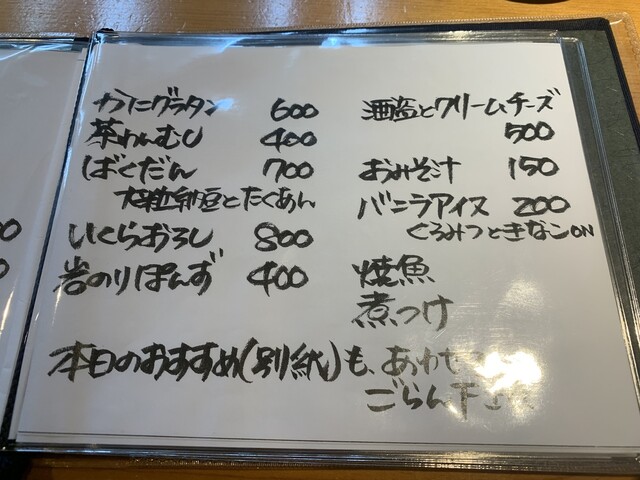 かにグラタン 600
茶わんむし 400
ばくだん 700
大粒納豆とたくあん
いくらおろし 800
岩のりぽんず 400
酒盗とクリームチーズ
500
おみそ汁 150
バニラアイス 200
くろみつときなこON
焼魚
煮つけ
本日のおすすめ(別紙)も、あわせ
ごらん下さい
00
0